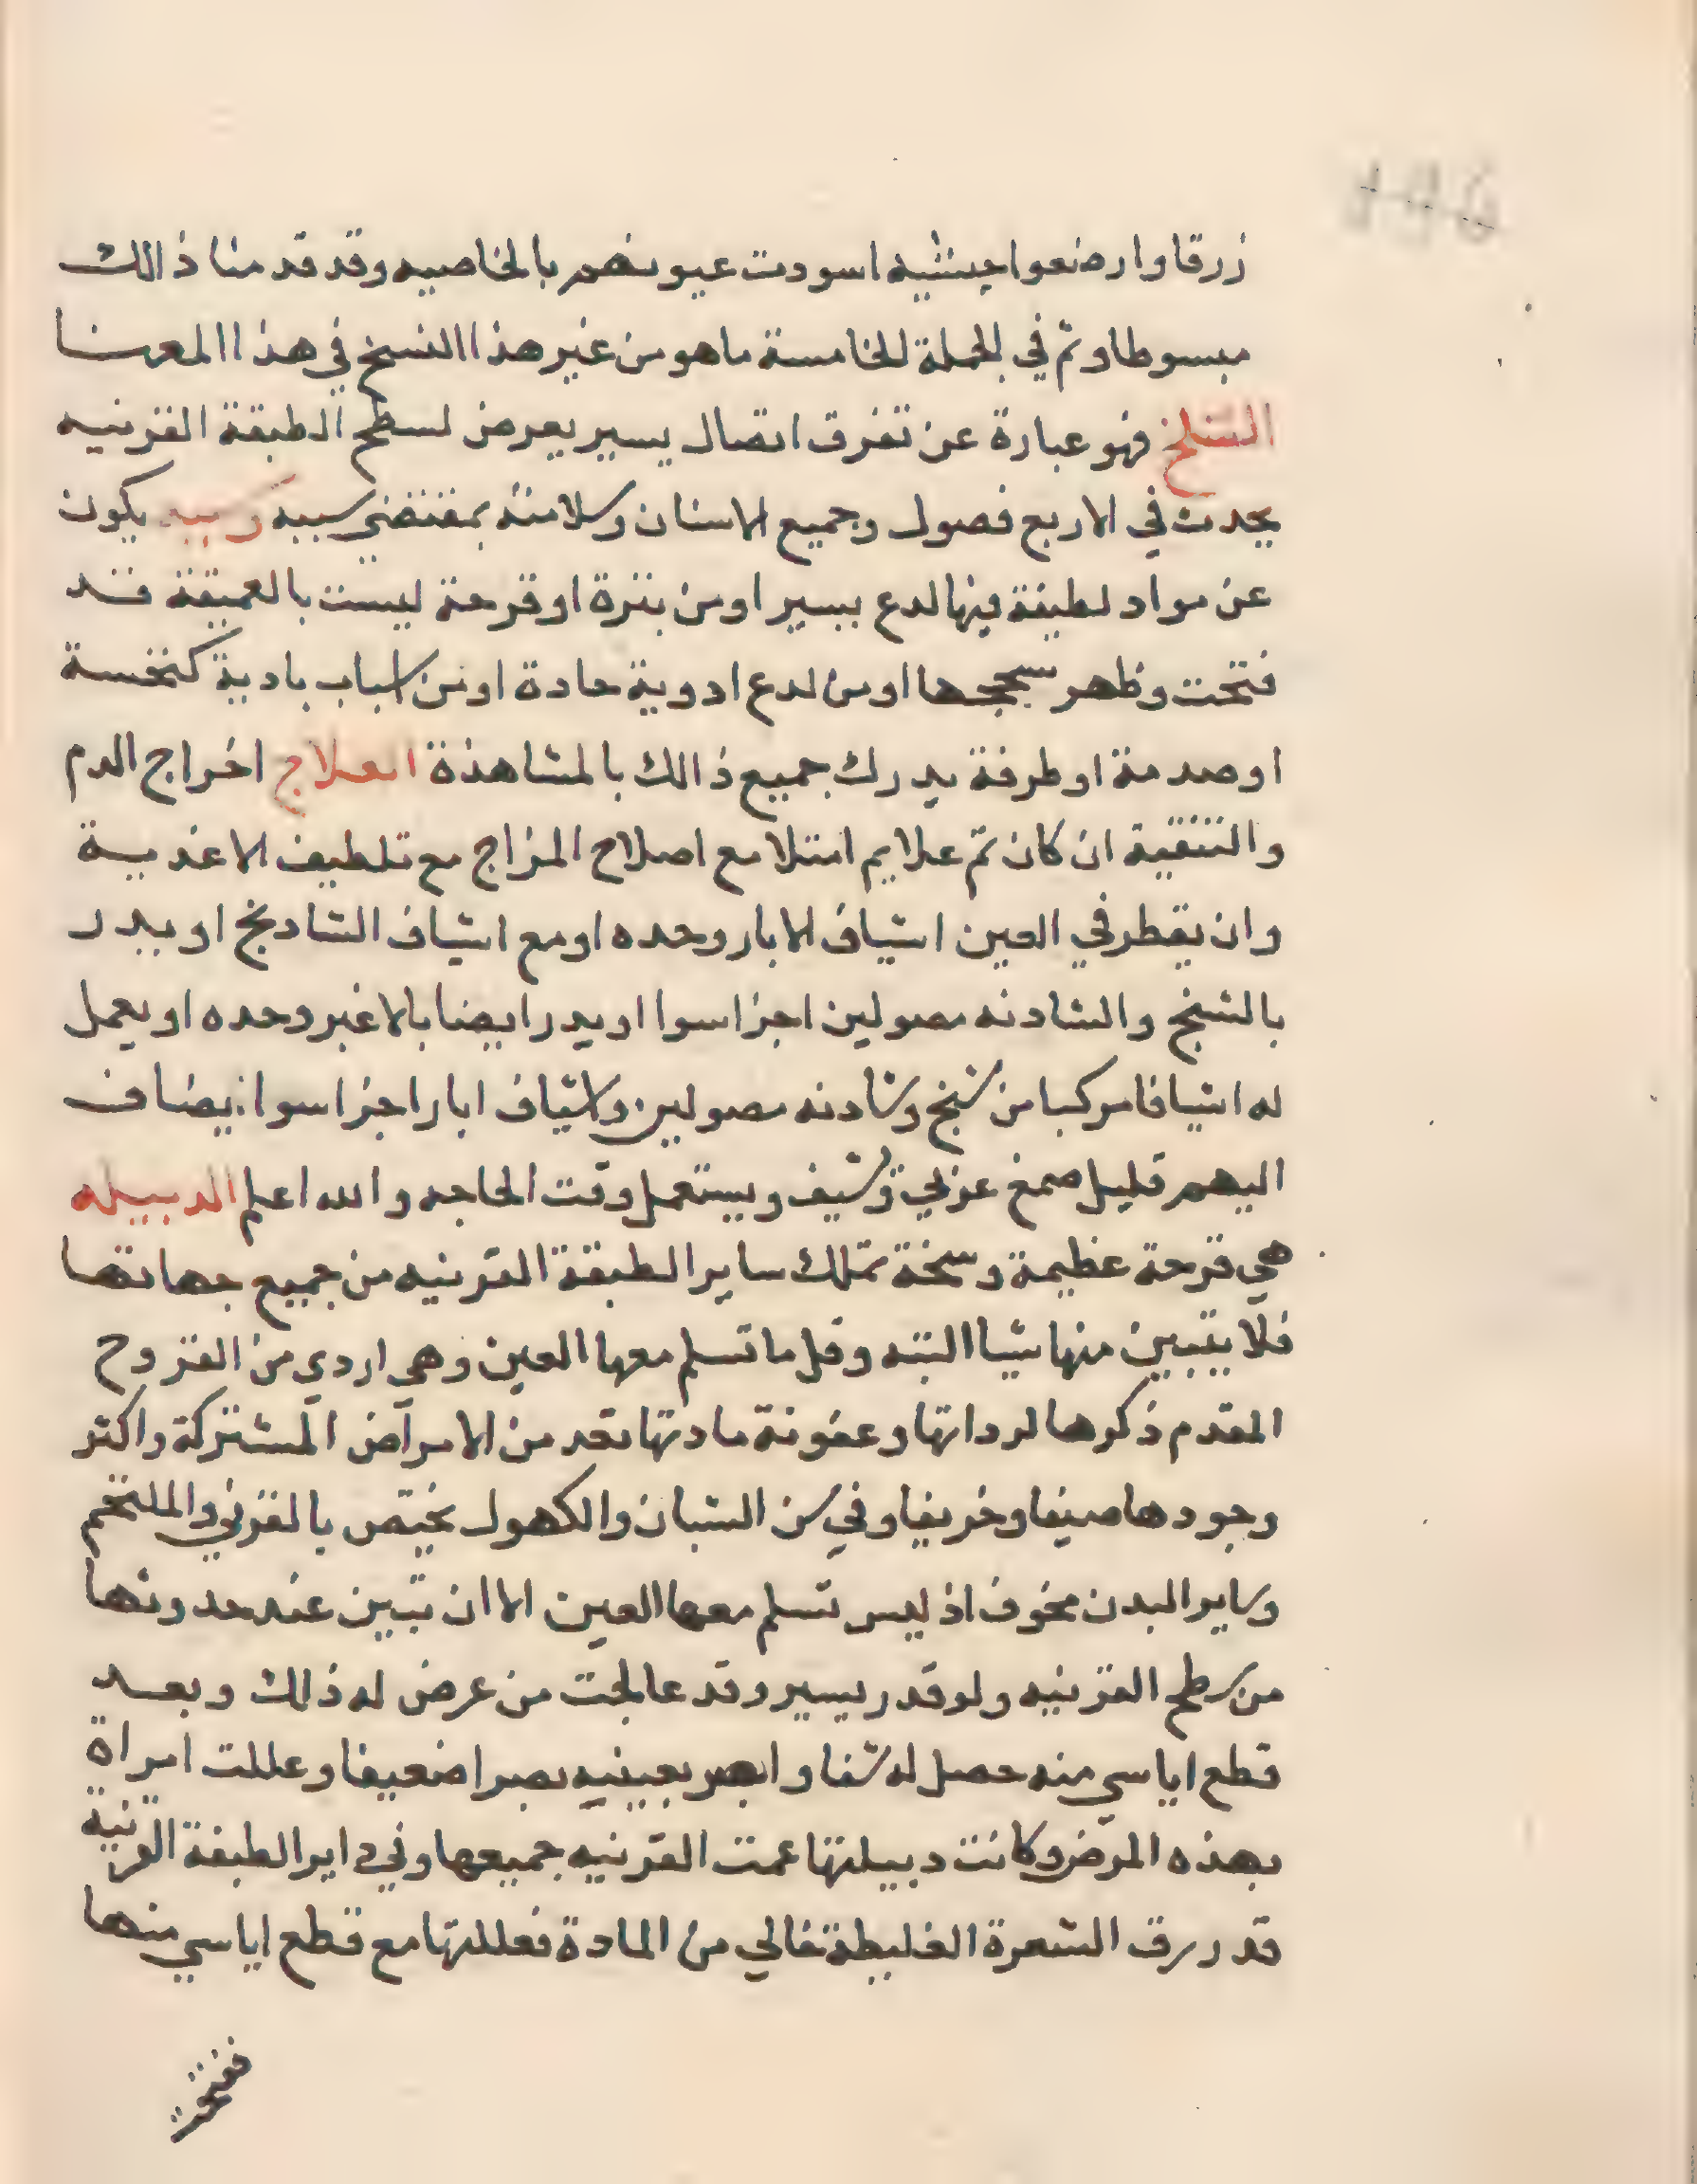 زرقا وارضعوا حبشيه اسودت عيونهم بالخاصيه وقد قدمنا ذالك
مبسوطا وثم في الجملة الخامسة ما هو من غير هذا النسخ في هذا المعنا
السلخ فهو عبارة عن تفرق اتصال يسير يعرض لسطح الطبقة القرنيه
يحدث في الاربع فصول وجميع الاسنان وسلامته بمقتضي سببه وسببه يكون
عن مواد لطيفة فيها لدع يسير او من بثرة او قرحة ليست بالعميقة قد
فتحت وظهر سحجها او من لدع ادوية حادة او من اسباب بادية كنخسة
او صدمة او طرفة يدرك جميع ذالك بالمشاهدة العلاج اخراج الدم
والتنقية ان كان ثم علايم امتلا مع اصلاح المزاج مع تلطيف الاغدية
وان يقطر في العين اشياف الابار وحده او مع اشياف الشادنج او يدر
بالشنج والشادنه مصولين اجزا سوا او يدر ايضا بالاغبر وحده او يعمل
له اشيافا مركبا من شنج وشادنه مصولين واشياف ابار اجزا سوا يضاف
اليهم قليل صمغ عربي وتشيف ويستعمل وقت الحاجه والله اعلم الدبيله
هي قرحة عظيمة وسخة تملك ساير الطبقة القرنيه من جميع جهاتها
فلا يتبين منها شيا البته وقل ما تسلم معها العين وهي اردي من القروح
المقدم ذكرها لرداتها وعفونة مادتها تعد من الامراض المشتركة واكثر
وجودها صيفا وخريفا وفي سن الشبان والكهول يختص بالقرني والملتحم
وساير البدن مخوف اذ ليس تسلم معها العين الا ان تبين عند حدوثها
من سطح القرنيه ولو قدر يسير وقد عالجت من عرض له ذلك وبعد
قطع اياسي منه حصل له شفا وابصر بعينيه بصرا ضعيفا وعللت امراة
بهذه المرض وكانت دبيلتها عمت القرنيه جميعها وفي داير الطبقة القرنية
قدر رق الشعرة الغليظة خالي من المادة فعللتها مع قطع اياسي منها
ففتحت